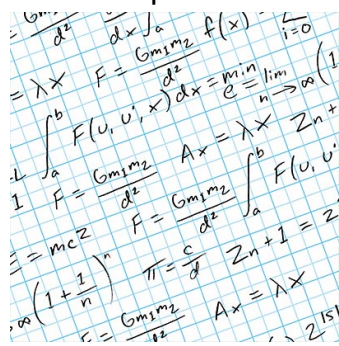 Gm₁m₂/d² d/dx ∫a f(x) Σ i=0
= λx F = Gm₁m₂/d² e = lim n→∞ (1
∫a^b F(u, u', x) dx = min
1 F = Gm₁m₂/d² Ax = λx Zn+
F = Gm₁m₂/d² ∫a^b F(u, u'
= mc² π = c/d Zn+1 = z
∞ (1 + 1/n)^n
= Gm₁m₂/d² Ax = λx 2^|S|